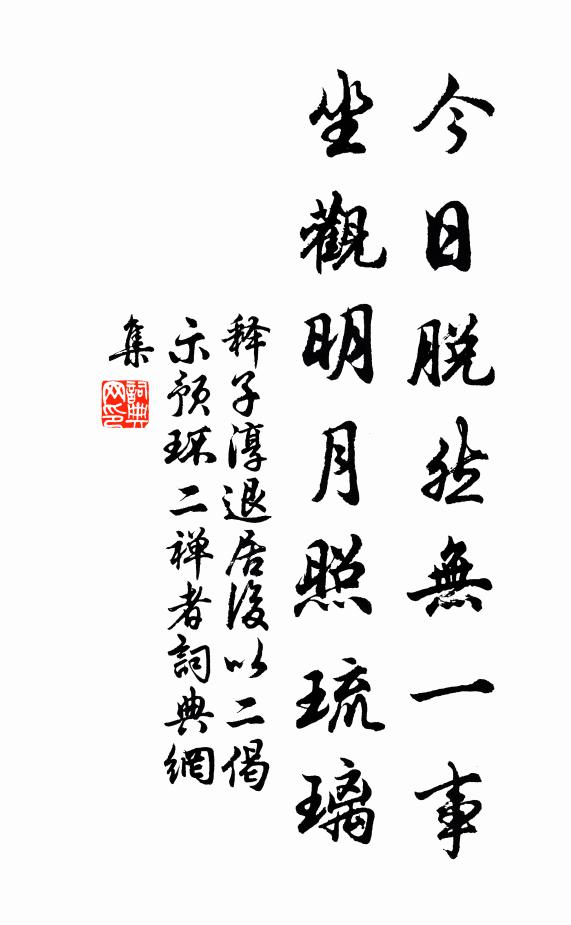 今日脱然無一事
坐觀明月照琉璃
释子淳退居後以二偈
示預環二禅者詞典網
集
詞典
网印